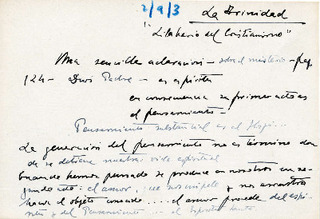 2/9/3
La Trinidad
"Silabario del Cristianismo"
Una sencilla aclaración - sobre el misterio - pag
124 - Dios Padre - es espíritu
en consecuencia su primer acto es
el pensamiento -
Pensamiento substancial es el Hijo...
La generación del pensamiento no es término don
de se detiene nuestra vida espiritual
Cuando hemos pensado se produce en nosotros un se-
gundo acto: el amor, y nos arrastra
hacia el objeto amado.... el amor procede del espí-
ritu y del Pensamiento :- el Espíritu Santo